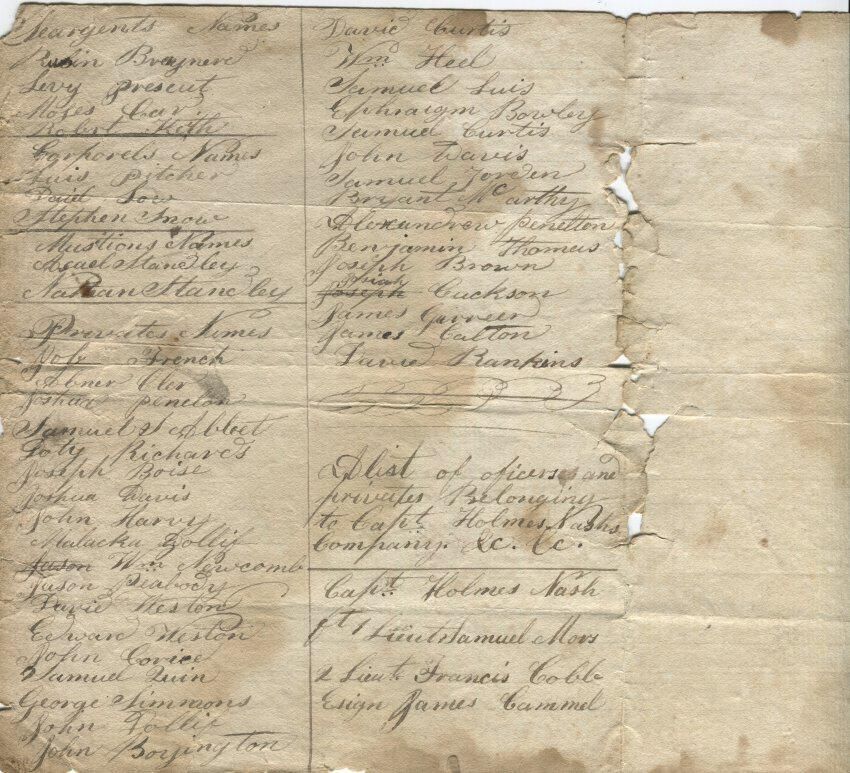 Seargents Names
Braynerd
Levy Present
Moses Car
Robert Keth
Corporels Names
Luis Pitcher
Paul Low
Stephen Snow
Musitions Names
Asael Standley
Nathan Standley
Privates Names
Job French
Abner
Penelton
Samuel S Ableet
Loty Richards
Joseph Boise
Joshua Davis
John Harvy
Malacka Dollif
Jason Wm Newcomb
Juson Peabody
David Weston
Edward Weston
John Corice
Samuel Luin
George Simmons
John Dollif
John Boyington
David Curtis
Wm Heel
Samuel Luis
Ephraigm Bowley
Samuel Curtis
John Davis
Samuel Jorden
Bryant McCarthy
Alexandrew Penelton
Benjamin Thomas
Joseph Brown
Josiah
Joseph Cuckson
James Gurreer
James Catton
David Rankins
A list of oficers and
privates Belonging
to Capt. Holmes Nashs
Company. &c. &c.
Capt. Holmes Nash
Lieut Samuel Mors
2 Lieut Francis Cobb
Esign James Cammel